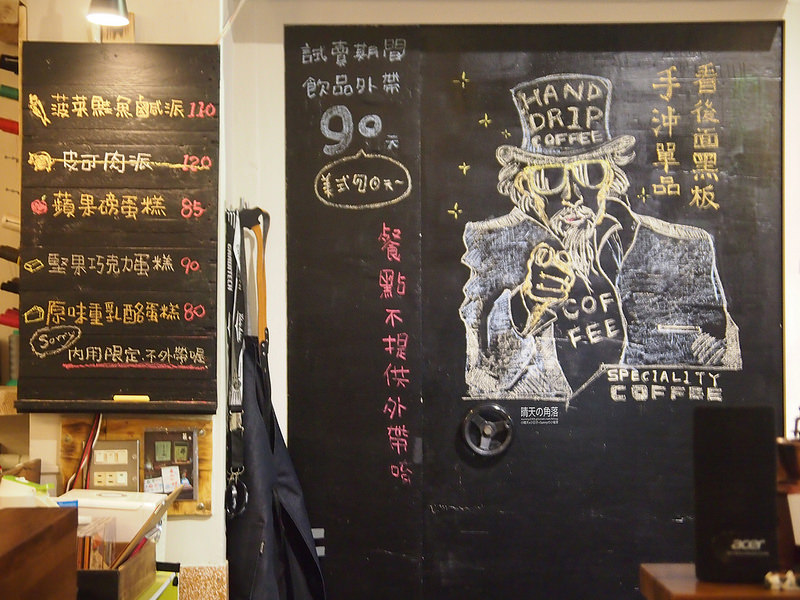 菠菜鮭魚鹹派 110
皮可肉派 120
蘋果磅蛋糕 85
堅果巧克力蛋糕 90
原味重乳酪蛋糕 80
Sorry
內用限定.不外帶喔
試賣期間
飲品外帶
90元
餐點不提供外帶唷
HAND
DRIP
COFFEE
看後面黑板
手沖單品
COF
FEE
SPECIALITY
COFFEE
晴天の角落
acer